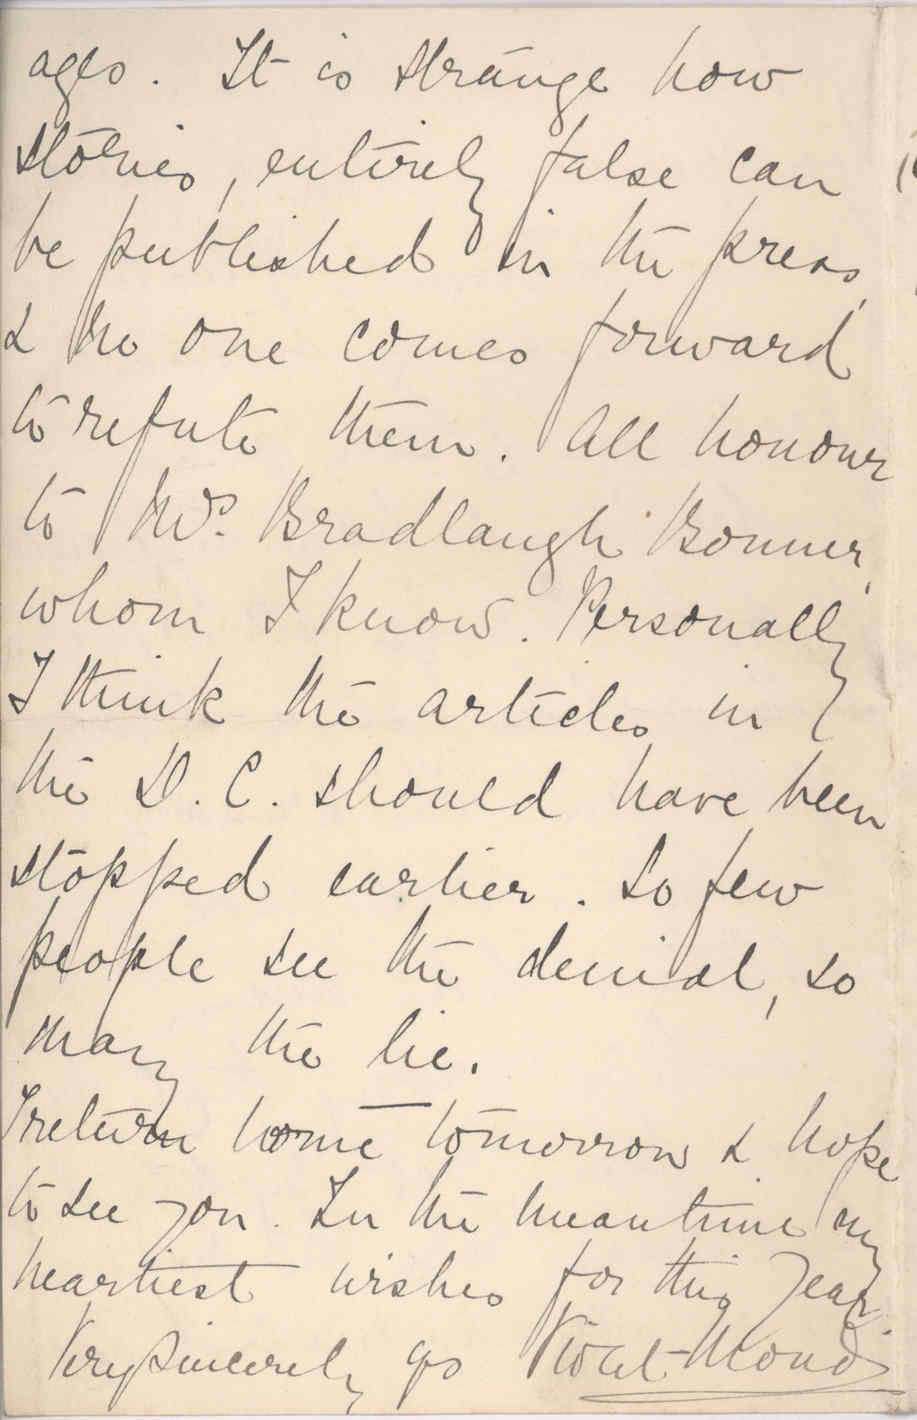 ages. It is strange how
stories, entirely false can
be published in the press,
& no one comes forward
to refute them. All honour
to Mrs. Bradlaugh Bonner,
whom I know. Personally
I think the articles in
the D. C. should have been
stopped earlier. So few
people see the denial, so
many the lie.
I return home tomorrow & hope
to see you. In the meantime my
heartiest wishes for this Year.
Very sincerely yrs Violet Mond